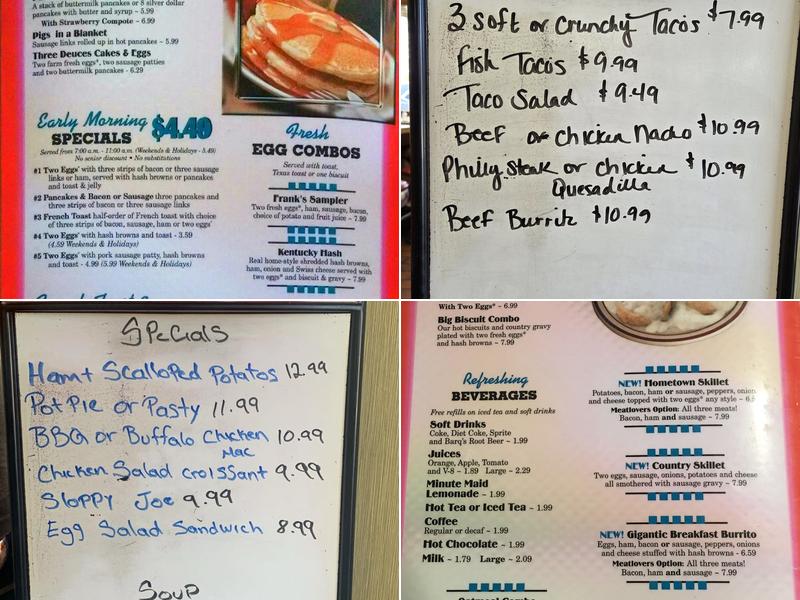 A stack of buttermilk pancakes or 8 silver dollar
pancakes with butter and syrup ~ 5.99
With Strawberry Compote ~ 6.99
Pigs in a Blanket
Sausage links rolled up in hot pancakes ~ 5.99
Three Deuces Cakes & Eggs
Two farm fresh eggs*, two sausage patties
and two buttermilk pancakes - 6.29
Early Morning $4.49
SPECIALS
Served from 7:00 a.m. - 11:00 a.m. (Weekends & Holidays - 5.49)
No senior discount • No substitutions
#1 Two Eggs* with three strips of bacon or three sausage
links or ham, served with hash browns or pancakes
and toast & jelly
#2 Pancakes & Bacon or Sausage three pancakes and
three strips of bacon or three sausage links
#3 French Toast half-order of French toast with choice
of three strips of bacon, sausage, ham or two eggs*
#4 Two Eggs* with hash browns and toast - 3.59
(4.59 Weekends & Holidays)
#5 Two Eggs* with pork sausage patty, hash browns
and toast - 4.99 (5.99 Weekends & Holidays)
Fresh
EGG COMBOS
Served with toast,
Texas toast or one biscuit
Frank's Sampler
Two fresh eggs*, ham, sausage, bacon,
choice of potato and fruit juice ~ 7.99
Kentucky Hash
Real home-style shredded hash browns,
ham, onion and Swiss cheese served with
two eggs* and biscuit & gravy ~ 7.99
3 Soft or Crunchy Tacos $7.99
Fish Tacos $9.99
Taco Salad $9.49
Beef or chicken Nacho $10.99
Philly Steak or chicken $10.99
Quesadilla
Beef Burrito $10.99
Specials
Ham + Scalloped Potatos 12.99
Pot Pie or Pasty 11.99
BBQ or Buffalo Chicken 10.99
Mac
Chicken Salad croissant 9.99
Sloppy Joe 9.99
Egg Salad Sandwich 8.99
Soup
With Two Eggs* ~ 6.99
Big Biscuit Combo
Our hot biscuits and country gravy
plated with two fresh eggs*
and hash browns ~ 7.99
Refreshing
BEVERAGES
Free refills on iced tea and soft drinks
Soft Drinks
Coke, Diet Coke, Sprite
and Barq's Root Beer ~ 1.99
Juices
Orange, Apple, Tomato
and V-8 ~ 1.89 Large ~ 2.29
Minute Maid
Lemonade ~ 1.99
Hot Tea or Iced Tea ~ 1.99
Coffee
Regular or decaf ~ 1.99
Hot Chocolate ~ 1.99
Milk ~ 1.79 Large ~ 2.09
Oatmeal Combo
NEW! Hometown Skillet
Potatoes, bacon, ham or sausage, peppers, onion
and cheese topped with two eggs* any style ~
Meatlovers Option: All three meats!
Bacon, ham and sausage ~ 7.99
NEW! Country Skillet
Two eggs, sausage, onions, potatoes and cheese
all smothered with sausage gravy ~ 7.99
NEW! Gigantic Breakfast Burrito
Eggs, ham, bacon or sausage, peppers, onions
and cheese stuffed with hash browns - 6.59
Meatlovers Option: All three meats!
Bacon, ham and sausage ~ 7.99